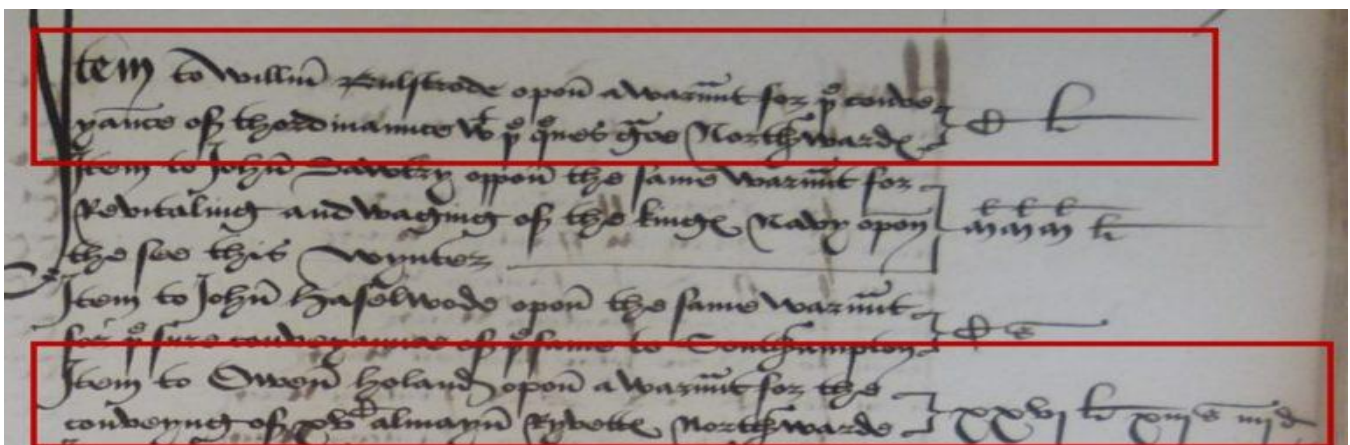 Item to Willm̄ Bulstrode opon̄ a warūnt for þe conve
yance off thordinaunce wt þe quenes g̃ce Northwarde C li
Item to John̄ Sawtry oppon̄ the same warūnt for
Revitaling and waging off the kinges Navy opon̄ mlmlml li
the see this wynter
Item to John̄ Haselwode opon̄ the same warūnt
for þe sure conveyaunce off þe same to Southampton C s
Item to Owen̄ Holand opon̄ a warūnt for the
conveyng off xvC almayn̄ Ryvettes Northwarde xxvi li xiii s iiii d